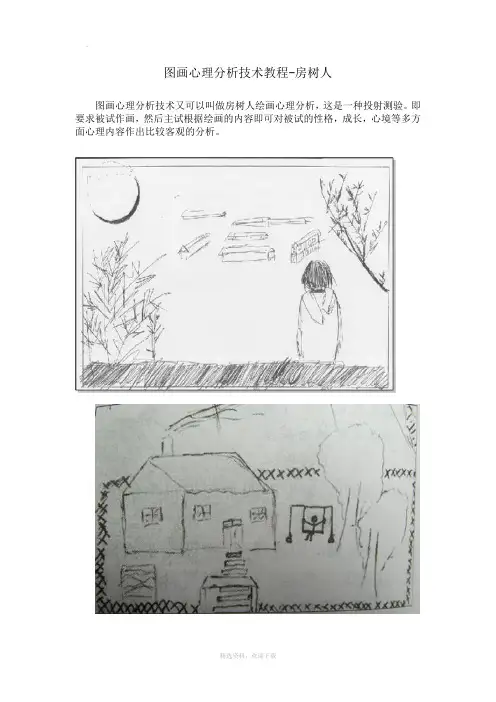 图画心理分析技术教程-房树人
图画心理分析技术又可以叫做房树人绘画心理分析，这是一种投射测验。即
要求被试作画，然后主试根据绘画的内容即可对被试的性格，成长，心境等多方
面心理内容作出比较客观的分析。